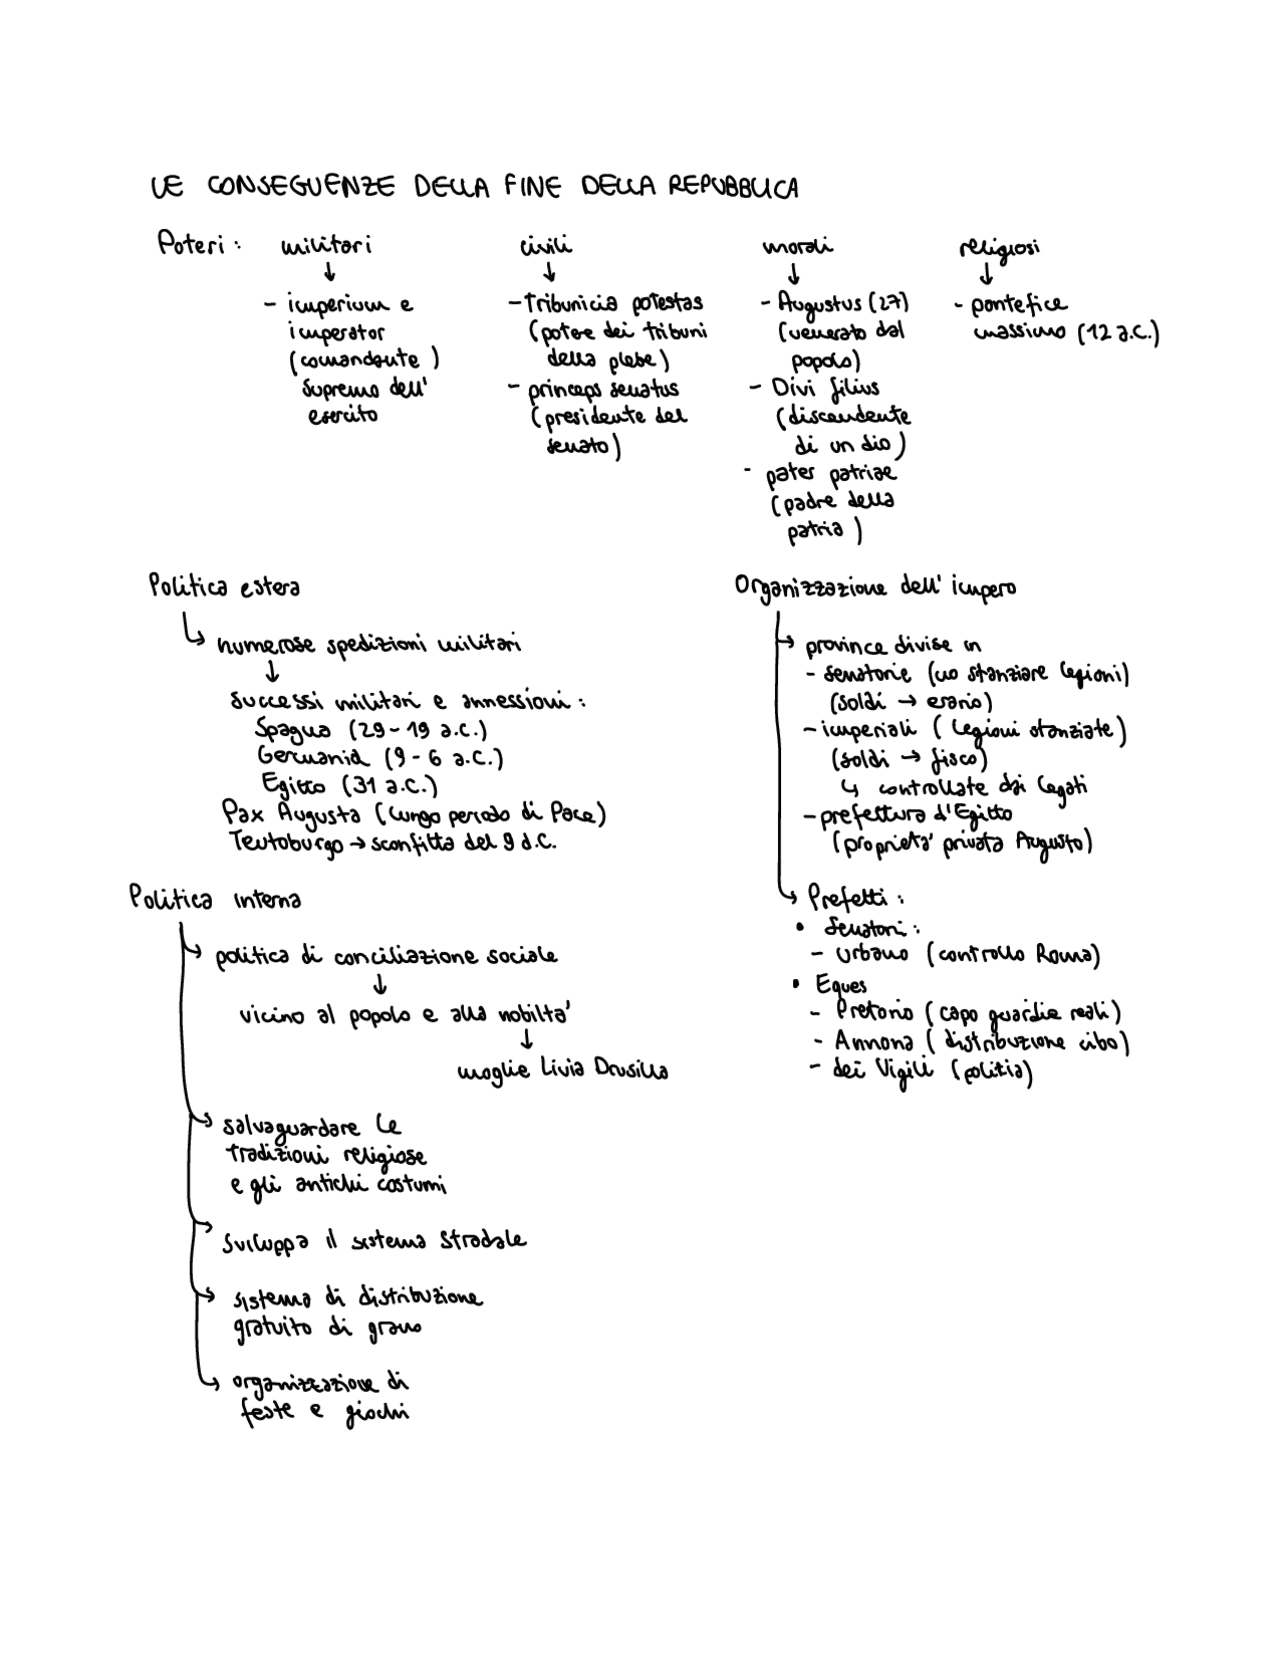 LE CONSEGUENZE DELLA FINE DELLA REPUBBLICA
Poteri: militari civili morali religiosi
↓ ↓ ↓ ↓
- imperium e
imperator
(comandante)
supremo dell'
esercito
- Tribunicia potestas
(potere dei tribuni
della plebe)
- princeps senatus
(presidente del
senato)
- Augustus (27)
(venerato dal
popolo)
- Divi filius
(discendente
di un dio)
- pater patriae
(padre della
patria)
- pontefice
massimo (12 a.C.)
Politica estera
↳ numerose spedizioni militari
↓
successi militari e annessioni:
Spagna (29-19 a.C.)
Germania (9-6 a.C.)
Egitto (31 a.C.)
Pax Augusta (lungo periodo di Pace)
Teutoburgo → sconfitta del 9 d.C.
Politica interna
→ politica di conciliazione sociale
↓
vicino al popolo e alla nobiltà
↓
moglie Livia Drusilla
→ salvaguardare le
tradizioni religiose
e gli antichi costumi
→ sviluppa il sistema stradale
→ sistema di distribuzione
gratuito di grano
→ organizzazione di
feste e giochi
Organizzazione dell'impero
→ province divise in
- senatorie (no stanziare legioni)
(soldi → erario)
- imperiali (legioni stanziate)
(soldi → fisco)
↳ controllate dai legati
- prefettura d'Egitto
(proprietà privata Augusto)
→ Prefetti:
• Senatori:
- Urbano (controllo Roma)
• Eques
- Pretorio (capo guardie reali)
- Annona (distribuzione cibo)
- dei Vigili (politia)